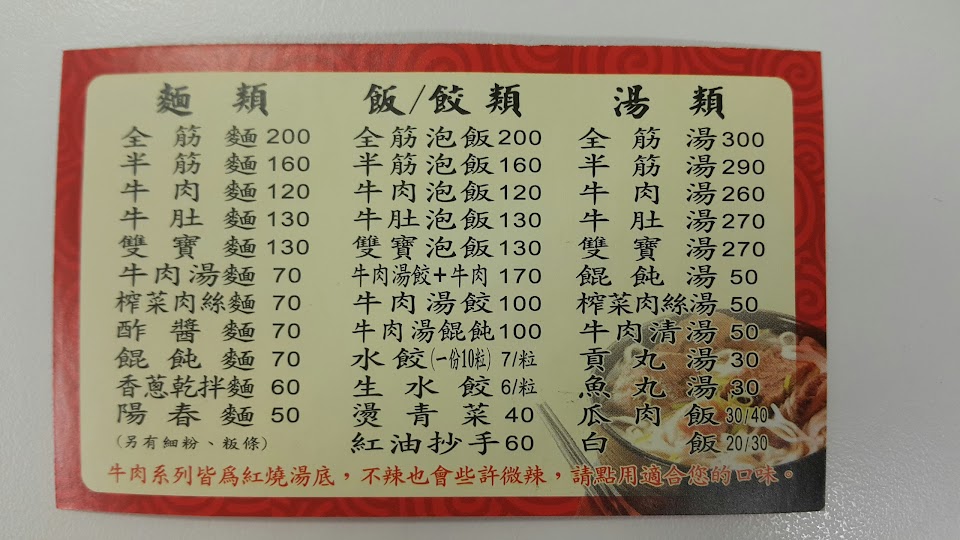 麵類
全筋麵200
半筋麵160
牛肉麵120
牛肚麵130
雙寶麵130
牛肉湯麵70
榨菜肉絲麵70
酢醬麵70
餛飩麵70
香蔥乾拌麵60
陽春麵50
(另有細粉、粄條)
飯/餃類
全筋泡飯200
半筋泡飯160
牛肉泡飯120
牛肚泡飯130
雙寶泡飯130
牛肉湯餃+牛肉170
牛肉湯餃100
牛肉湯餛飩100
水餃(一份10粒)7/粒
生水餃6/粒
燙青菜40
紅油抄手60
湯類
全筋湯300
半筋湯290
牛肉湯260
牛肚湯270
雙寶湯270
餛飩湯50
榨菜肉絲湯50
牛肉清湯50
貢丸湯30
魚丸湯30
瓜肉飯30/40
白飯20/30
牛肉系列皆爲紅燒湯底，不辣也會些許微辣，請點用適合您的口味。